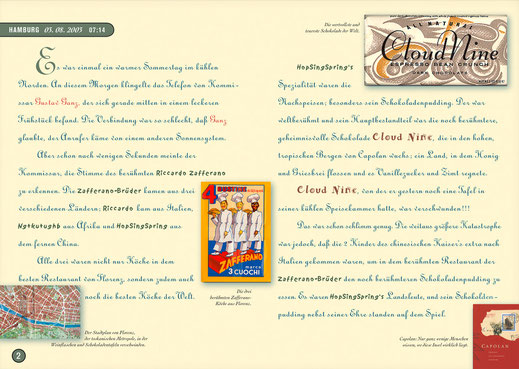 HAMBURG 05. 08. 2003 07:14
Es war einmal ein warmer Sommertag im kühlen
Norden. An diesem Morgen klingelte das Telefon von Kommi-
ssar Gustav Ganz, der sich gerade mitten in einem leckeren
Frühstück befand. Die Verbindung war so schlecht, daß Ganz
glaubte, der Anrufer käme von einem anderen Sonnensystem.
Aber schon nach wenigen Sekunden meinte der
Kommissar, die Stimme des berühmten Riccardo Zafferano
zu erkennen. Die Zafferano-Brüder kamen aus drei
verschiedenen Ländern: Riccardo kam aus Italien,
Ngtkutughb aus Afrika und HopSingSpring aus
dem fernen China.
Alle drei waren nicht nur Köche in dem
besten Restaurant von Florenz, sondern zudem auch
noch die besten Köche der Welt.
4
ZAFFERANO
marca
3 CUOCHI
Die drei
berühmten Zafferano
Köche aus Florenz.
Der Stadtplan von Florenz,
der toskanischen Metropole, in der
Weinflaschen und Schokoladentafeln verschwinden.
2
Die wertvollste und
teuerste Schokolade der Welt.
ALL NATURAL
Cloud Nine
ESPRESSO BEAN CRUNCH
DARK CHOCOLATE
HopSingSpring's
Spezialität waren die
Nachspeisen; besonders sein Schokoladenpudding. Der war
weltberühmt und sein Hauptbestandteil war die noch berühmtere,
geheimnisvolle Schokolade Cloud Nine, die in den hohen,
tropischen Bergen von Capolan wuchs; ein Land, in dem Honig
und Griesbrei flossen und es Vanillezucker und Zimt regnete.
Cloud Nine, von der es gestern noch eine Tafel in
seiner kühlen Speisekammer hatte, war verschwunden!!!
Das war schon schlimm genug. Die weitaus größere Katastrophe
war jedoch, daß die 2 Kinder des chinesischen Kaiser's extra nach
Italien gekommen waren, um in dem berühmten Restaurant der
Zafferano-Brüder den noch berühmteren Schokoladenpudding zu
essen. Es waren HopSingSpring's Landsleute, und sein Schokoladen-
pudding nebst seiner Ehre standen auf dem Spiel.
Capolan: Nur ganz wenige Menschen
wissen, wo diese Insel wirklich liegt.
CAPOLAN